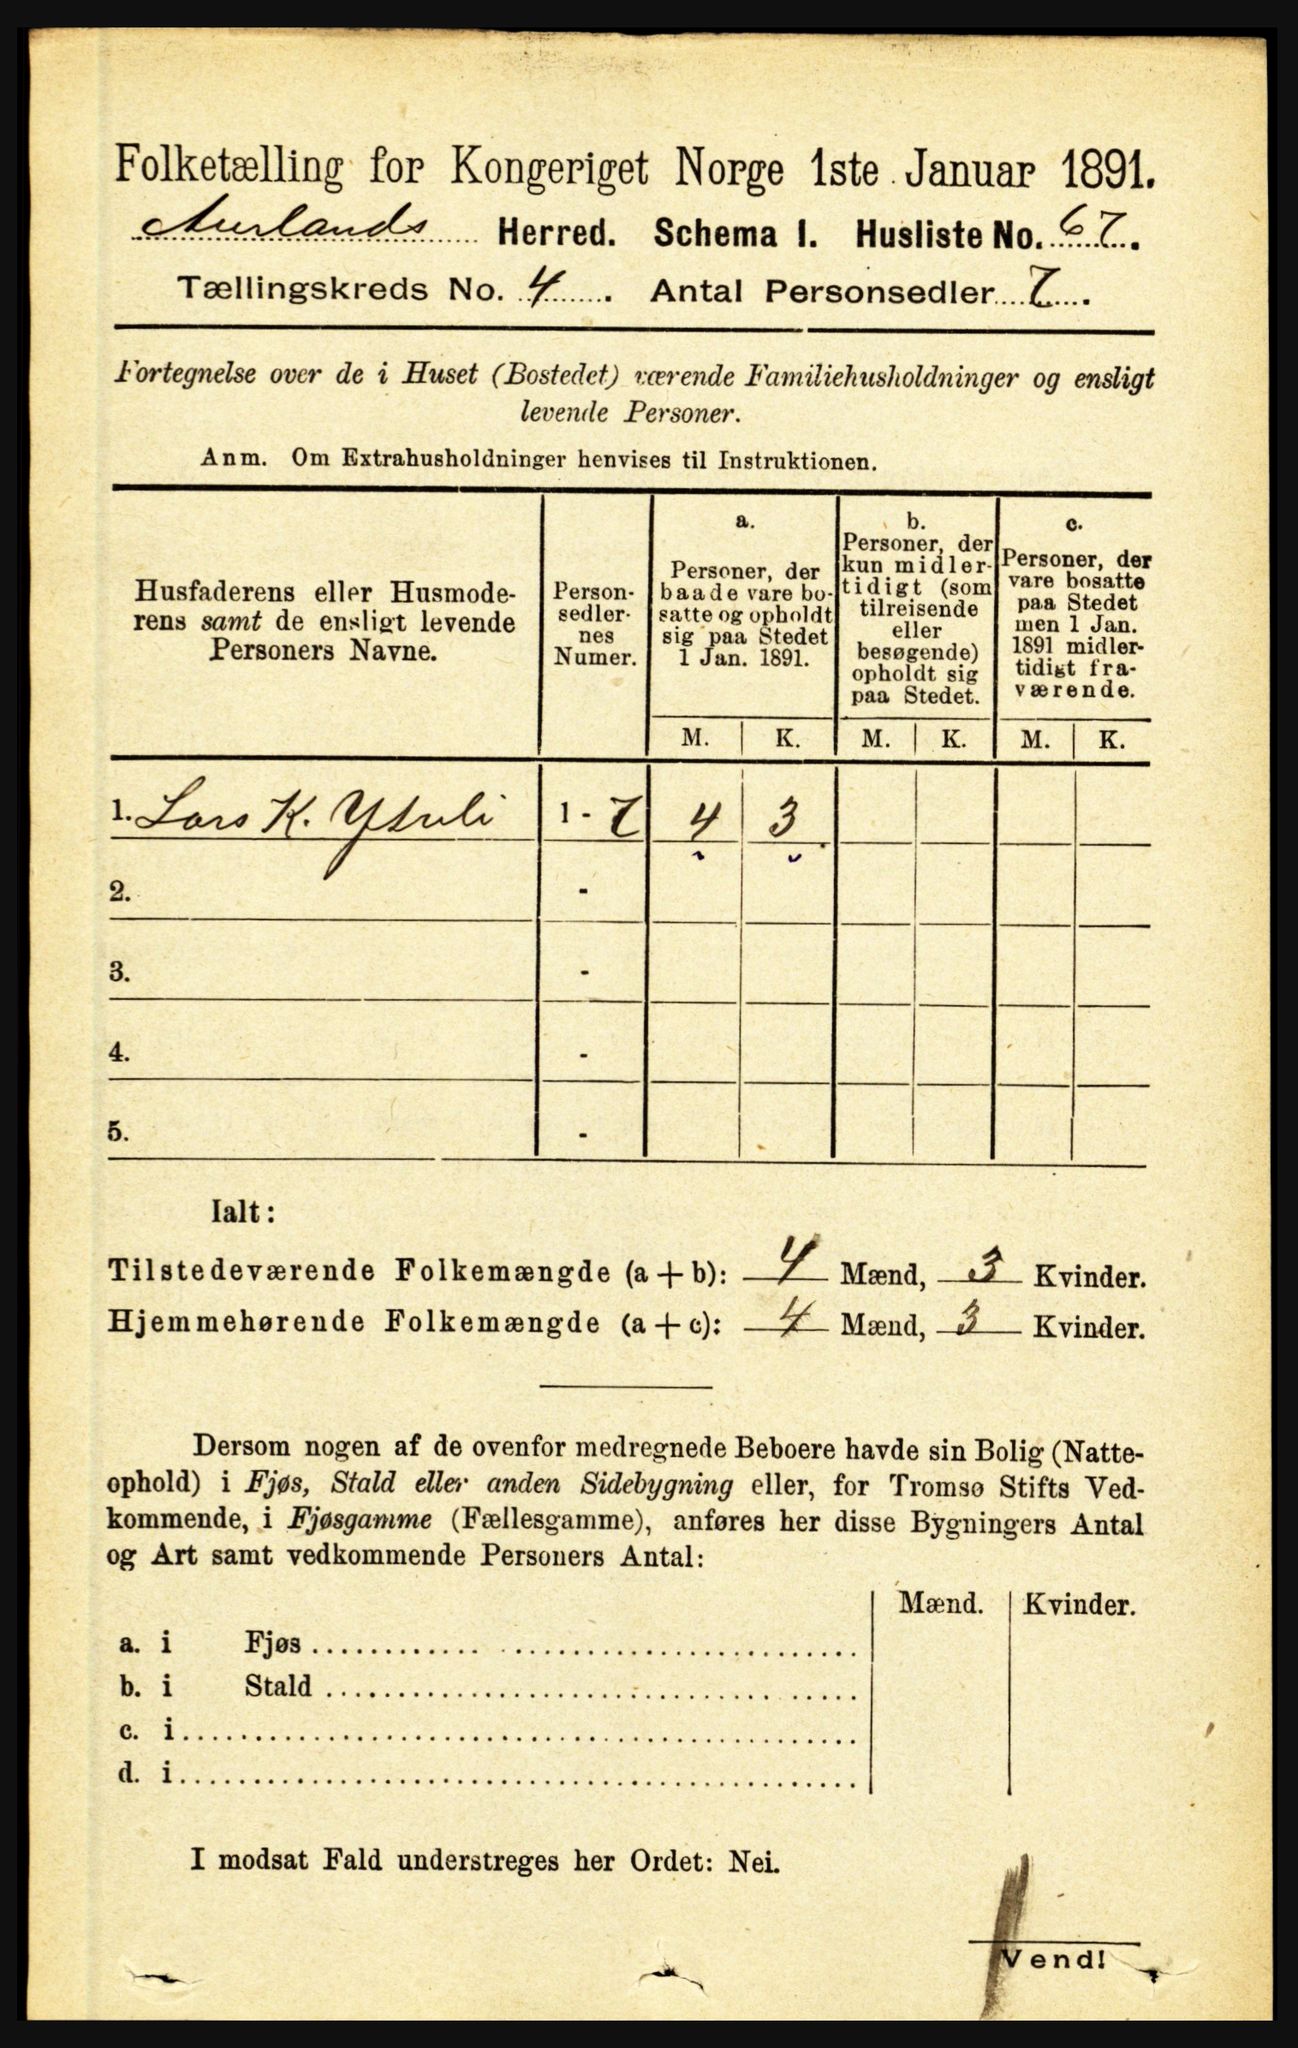 Folketælling for Kongeriget Norge 1ste Januar 1891.
Aurlands Herred. Schema I. Husliste No. 67.
Tællingskreds No. 4. Antal Personsedler 7.
Fortegnelse over de i Huset (Bostedet) værende Familiehusholdninger og ensligt
levende Personer.
Anm. Om Extrahusholdninger henvises til Instruktionen.
Husfaderens eller Husmode-
rens samt de ensligt levende
Personers Navne.
Person-
sedler-
nes
Numer.
a.
Personer, der
baade vare bo-
satte og opholdt
sig paa Stedet
1 Jan. 1891.
b.
Personer, der
kun midler-
tidigt (som
tilreisende
eller
besøgende)
opholdt sig
paa Stedet.
c.
Personer, der
vare bosatte
paa Stedet
men 1 Jan.
1891 midler-
tidigt fra-
værende.
M. K. M. K. M. K.
1. Lars K. Ytreli 1 - 7 4 3
2. -
3. -
4. -
5. -
Ialt:
Tilstedeværende Folkemængde (a + b): 4 Mænd, 3 Kvinder.
Hjemmehørende Folkemængde (a + c): 4 Mænd, 3 Kvinder.
Dersom nogen af de ovenfor medregnede Beboere havde sin Bolig (Natte-
ophold) i Fjøs, Stald eller anden Sidebygning eller, for Tromsø Stifts Ved-
kommende, i Fjøsgamme (Fællesgamme), anføres her disse Bygningers Antal
og Art samt vedkommende Personers Antal:
Mænd. Kvinder.
a. i Fjøs
b. i Stald
c. i
d. i
I modsat Fald understreges her Ordet: Nei.
Vend!